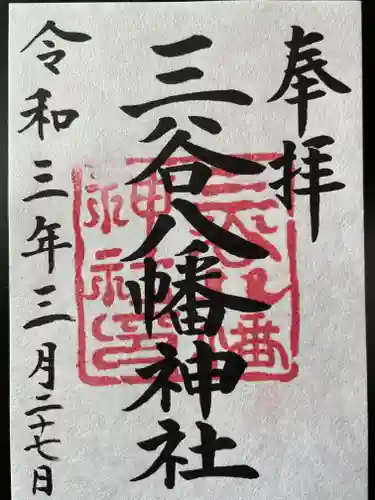 奉拝
三谷八幡神社
令和三年三月二十七日